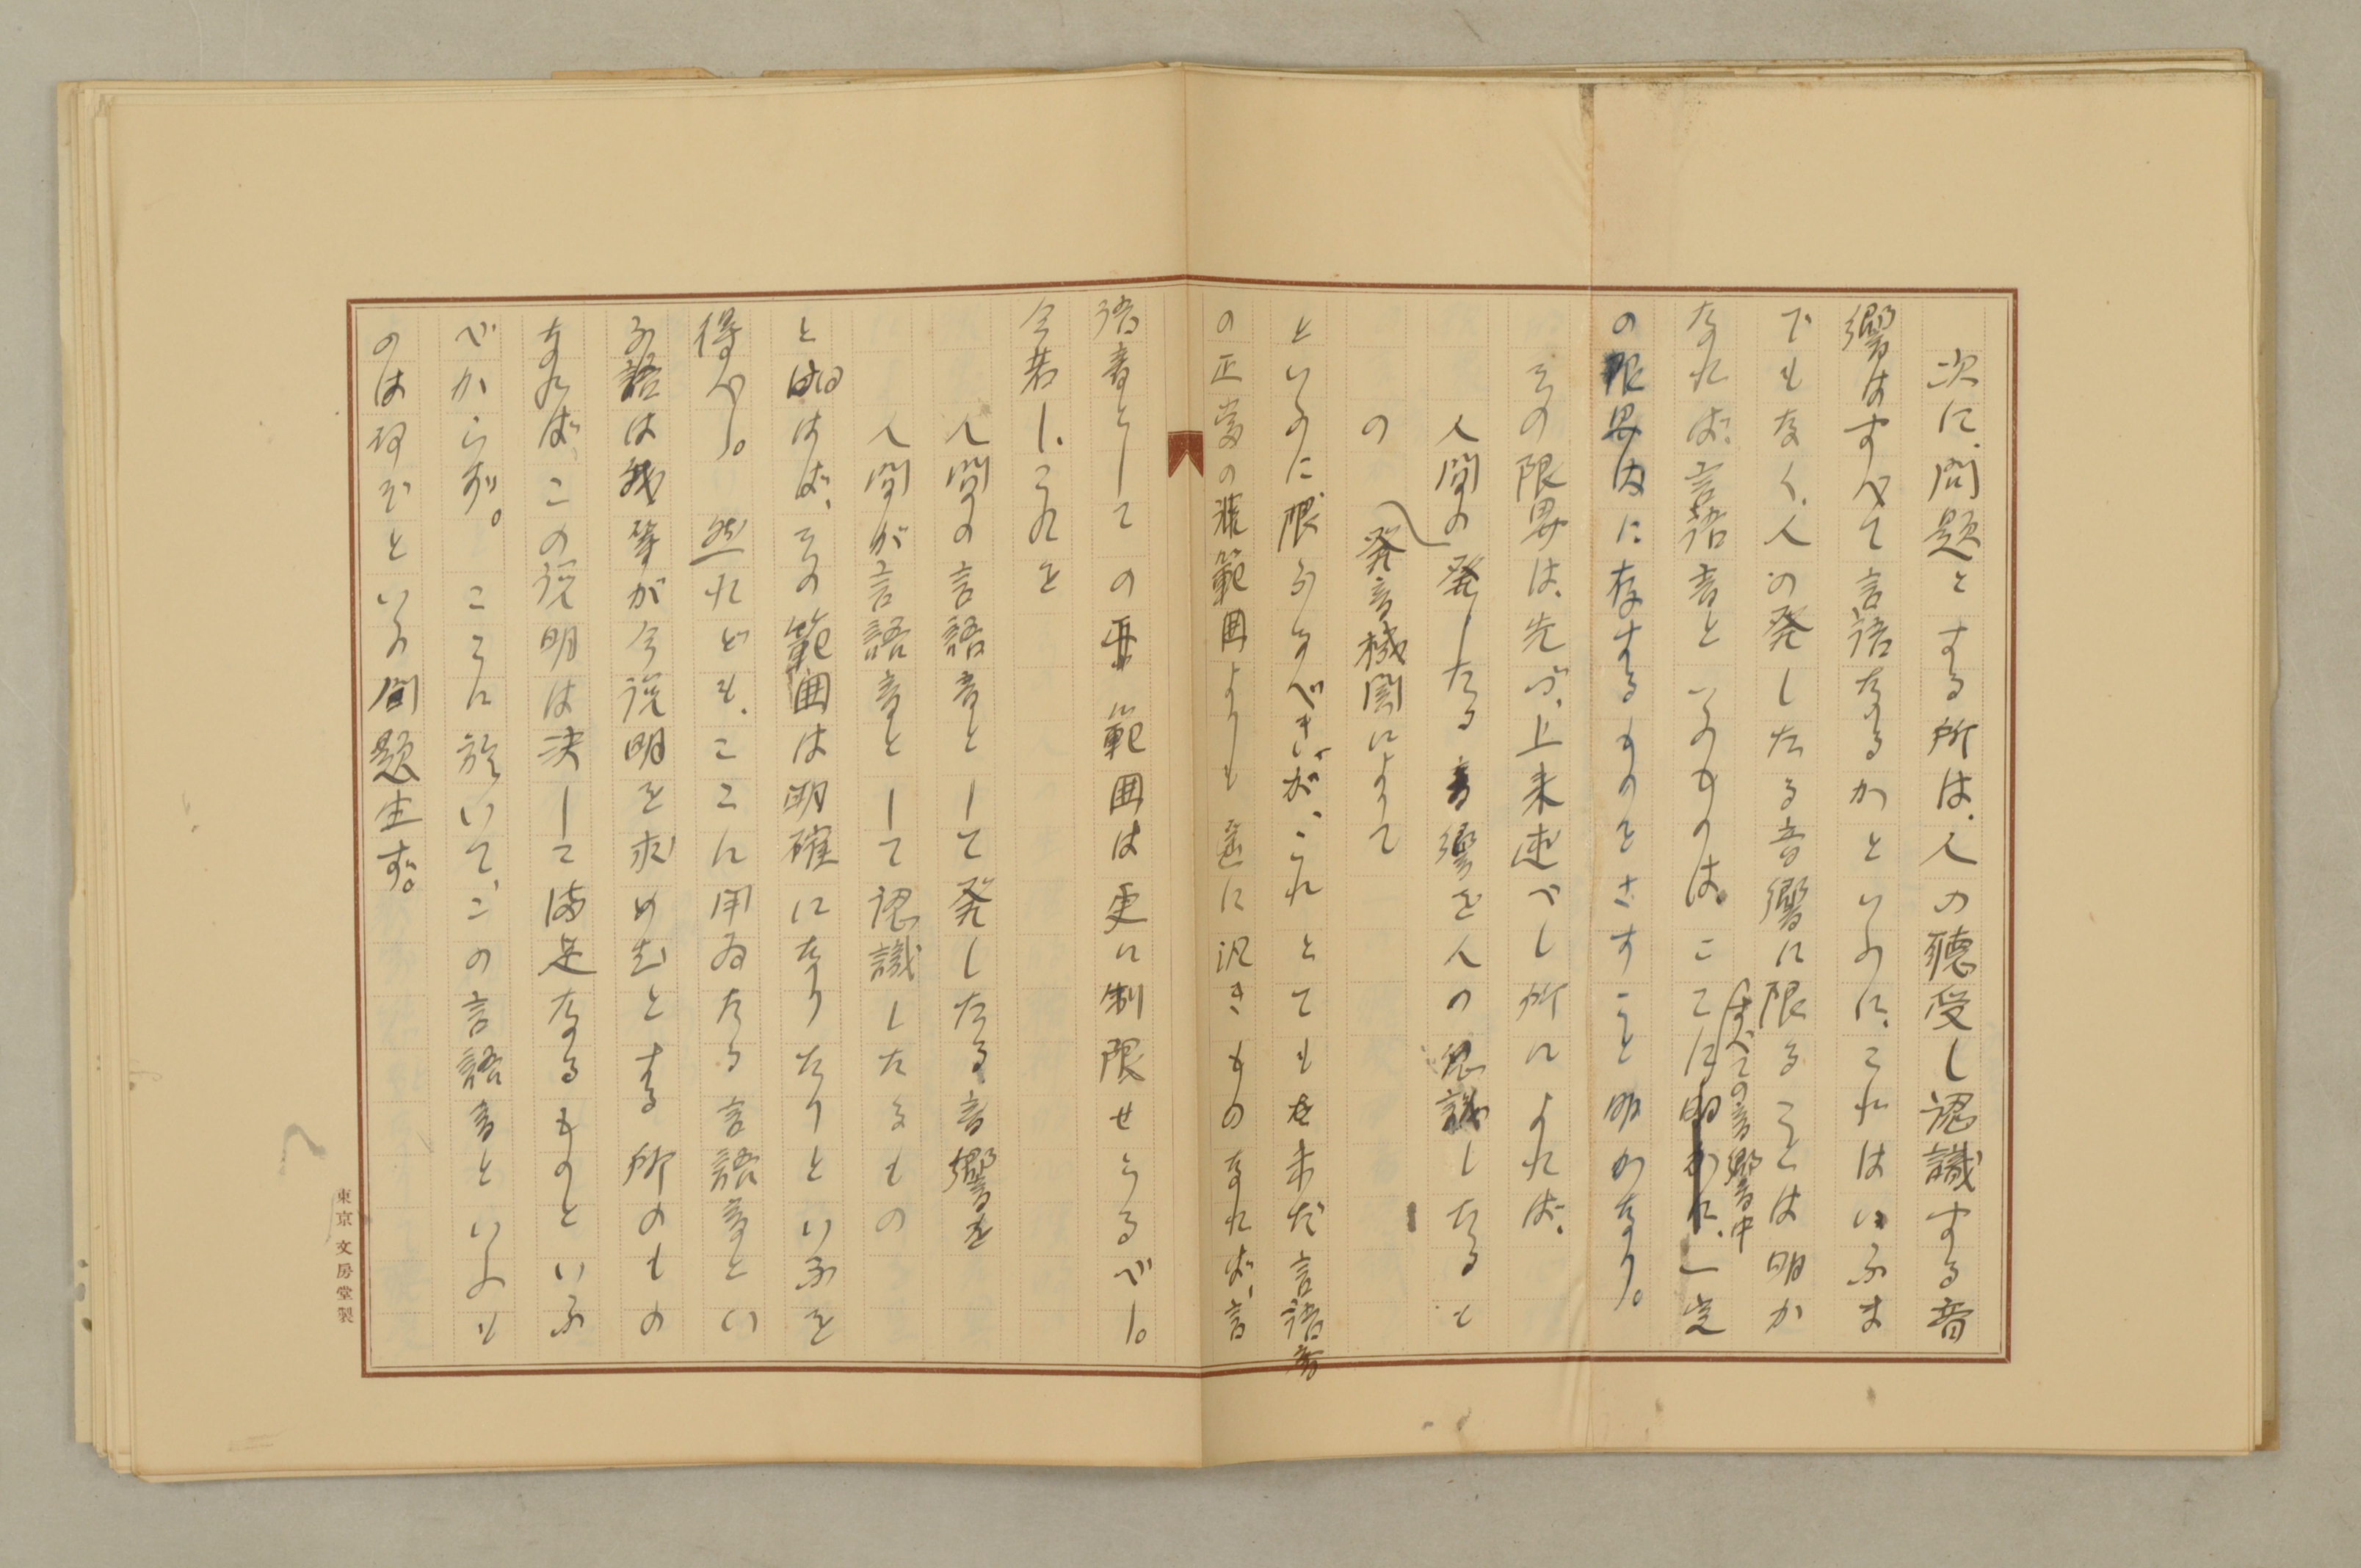 次に、問題とする所は、人の聴受し認識する音
響はすべて言語なるかといふに、これはいふま
でもなく、人の発したる音響に限ることは明か
なれば、言語音といふものは、ここに明かに、一定
すべての音響中
の限界内に存するものをさすこと明かなり。
その限界は、先づ、上来述べし所によれば、
人間の発したる音響を人の認識したるも
の
発音機関によりて
といふに限らるべきが、これとてもを未だ言語音
の正当の範囲よりも遥に汎きものなれば、言
語音としての範囲は更に制限せらるべし。
今若し、これを
人間の言語音として発したる音響を
人間が言語音として認識したるもの
とはいはば、その範囲は明確になりたりといふを
得べし。然れども、ここに用ゐたる言語音とい
ふ語は我等が今説明を求めむとする所のもの
なれば、この説明は決して満足なるものといふ
べからず。ここに於いて、この言語音といふも
のは何ぞといふ問題生ず。
東京 文房堂製